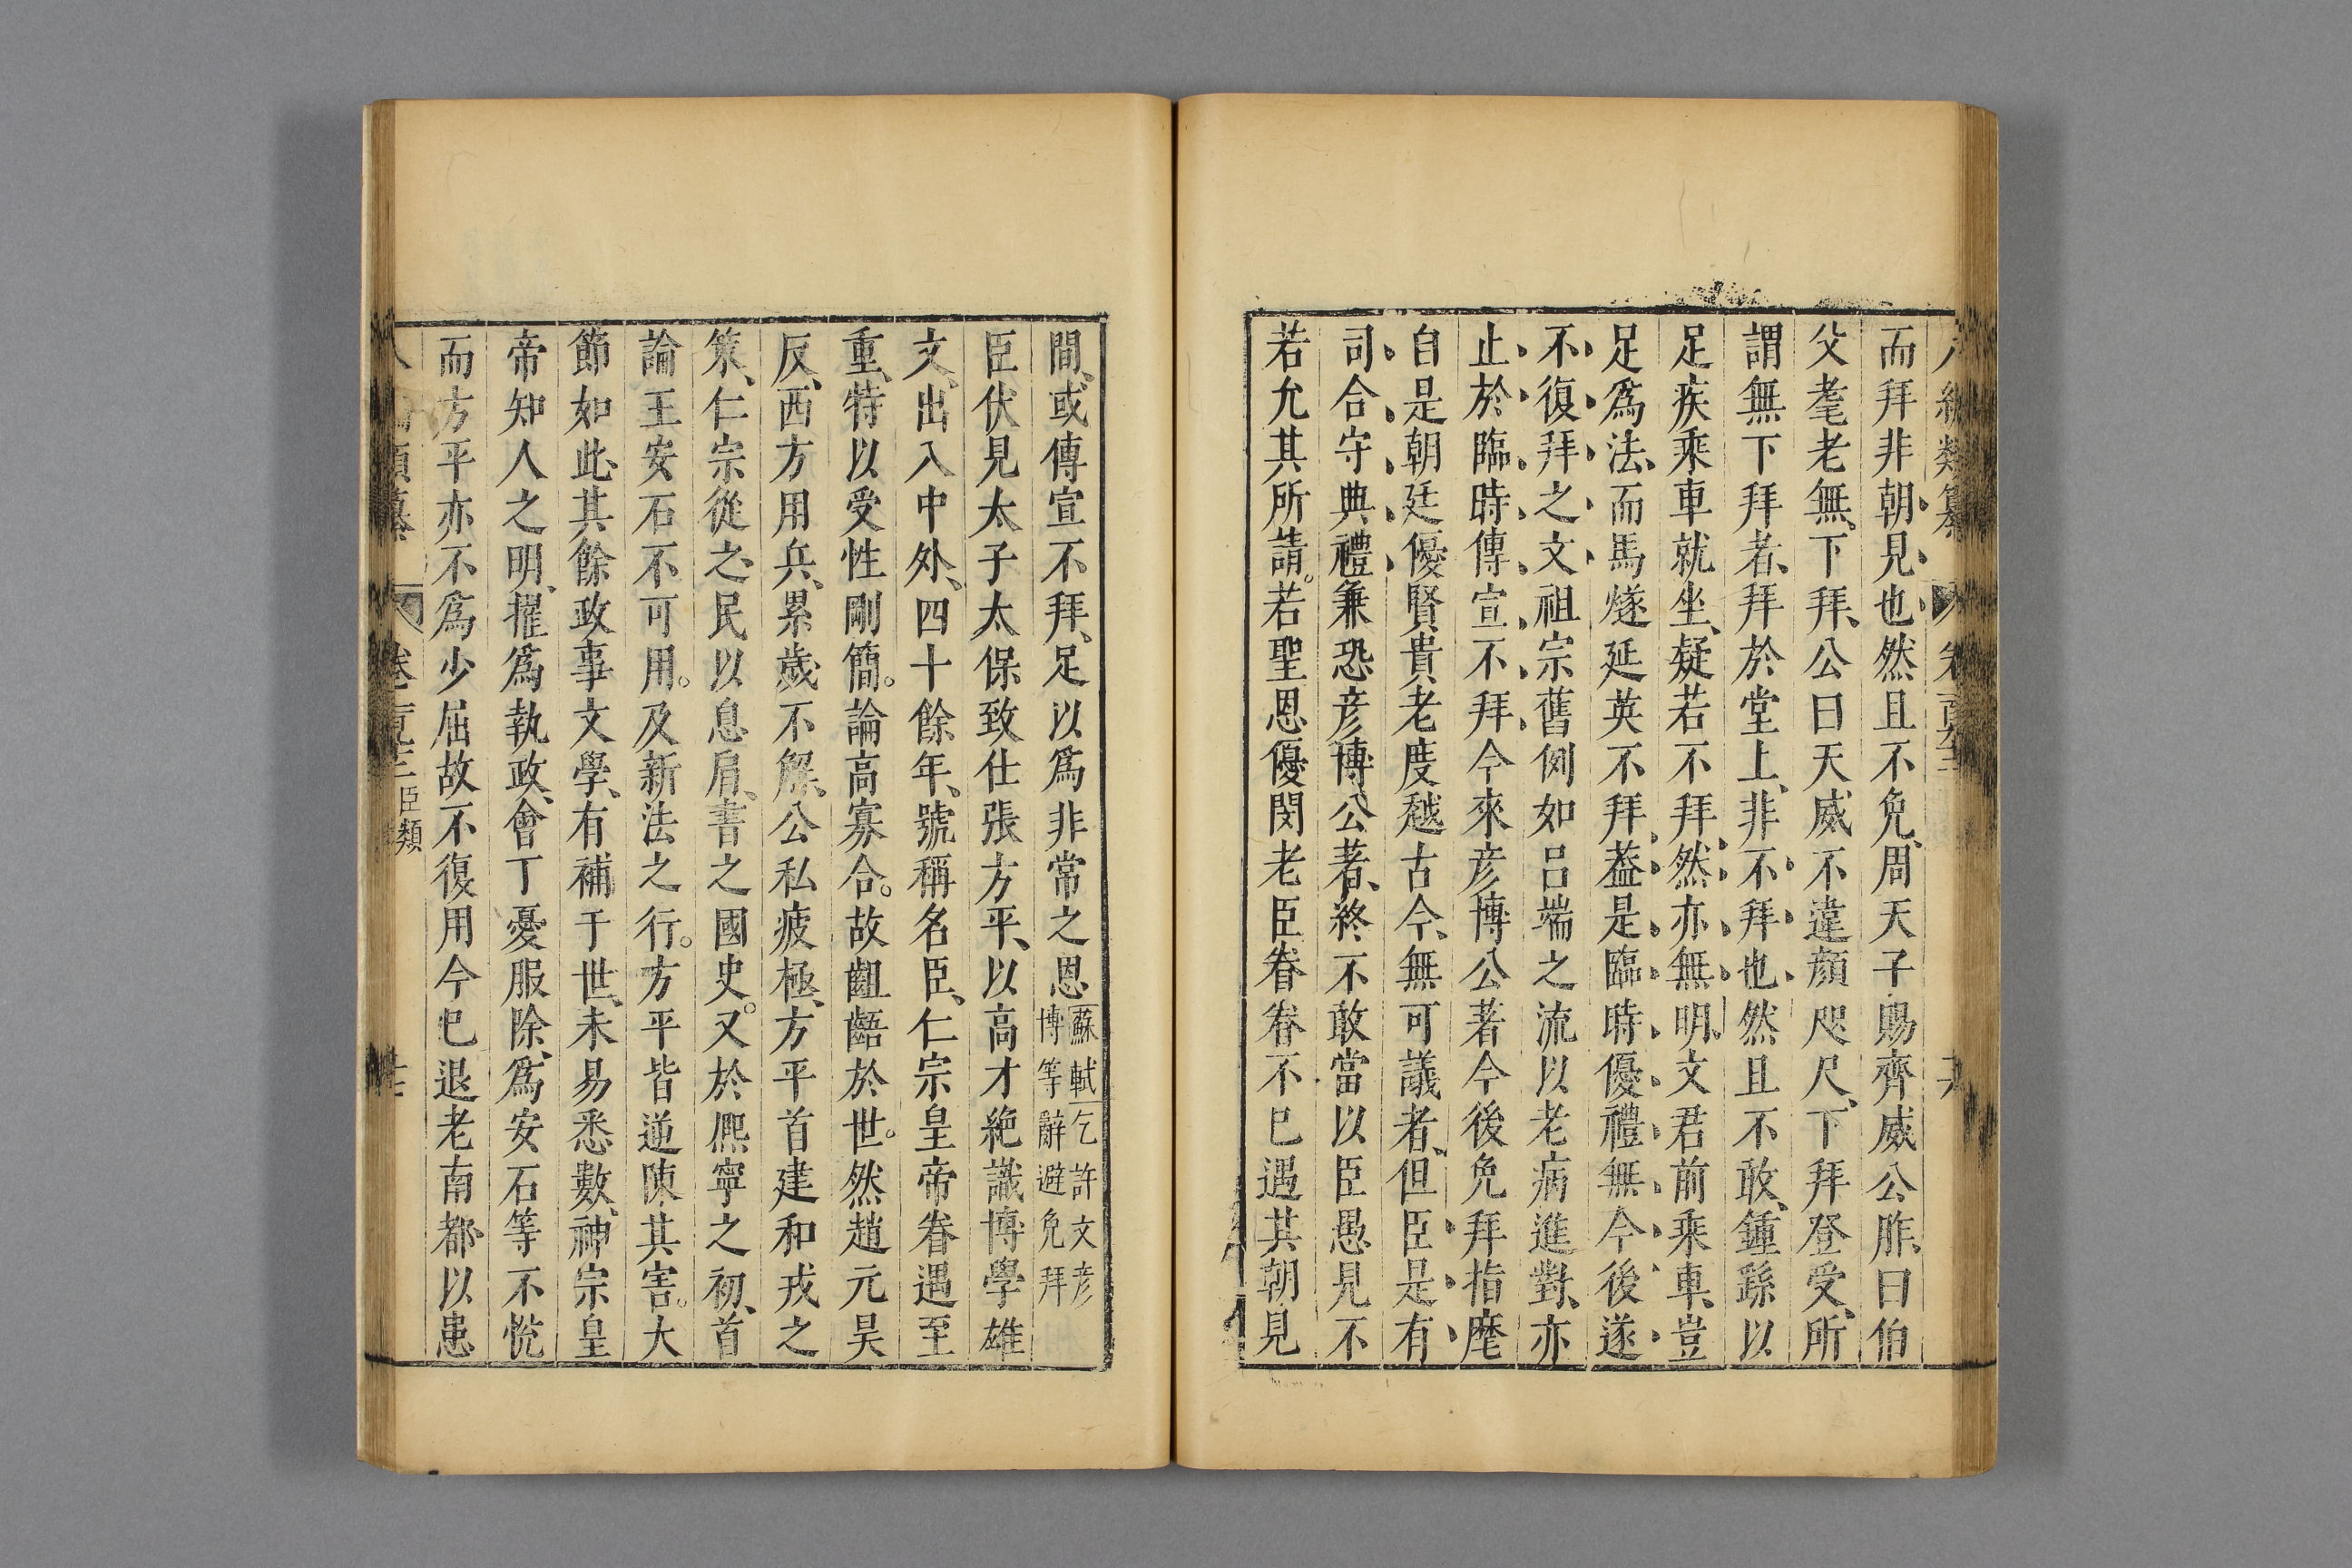 而拜非朝見也然且不免、周天子賜齊威公胙、曰伯
父耄老無、下拜、公曰天威不違顏咫尺、下拜登受、所
謂無下拜者、拜於堂上、非不拜也、然且不敢、鍾繇以
足疾乘車就坐、疑若不拜、然亦無明、文君前乘車、豈
足爲法、而馬燧延英不拜、葢是臨時優禮無今後遂
不復拜之文祖宗舊例如呂端之流以老病進對、亦
止於臨時傳宣不拜今來彥博公著今後免拜指麾
自是朝廷優賢貴老度越古今、無可議者、但臣是有
司合守典禮兼恐彥博公著、終不敢當以臣愚見不
若允其所請。若聖恩優閔老臣眷眷不已遇其朝見
間、或傳宣不拜、足以爲非常之恩蘇軾乞許文彥
博等辭避免拜
臣伏見太子太保致仕張方平、以高才絶識博學雄
文、出入中外、四十餘年、號稱名臣、仁宗皇帝眷遇至
重、特以受性剛簡。論高寡合。故齟齬於世。然趙元昊
反、西方用兵、累歲不解、公私疲極、方平首建和戎之
策、仁宗從之、民以息肩、書之國史。又於熙寧之初、首
論王安石不可用。及新法之行。方平皆逆陳其害。大
節如此、其餘政事文學、有補于世、未易悉數、神宗皇
帝知人之明、擢爲執政、會丁憂服除、爲安石等不悅
而方平亦不爲少屈故不復用今已退老南都以患
臣類